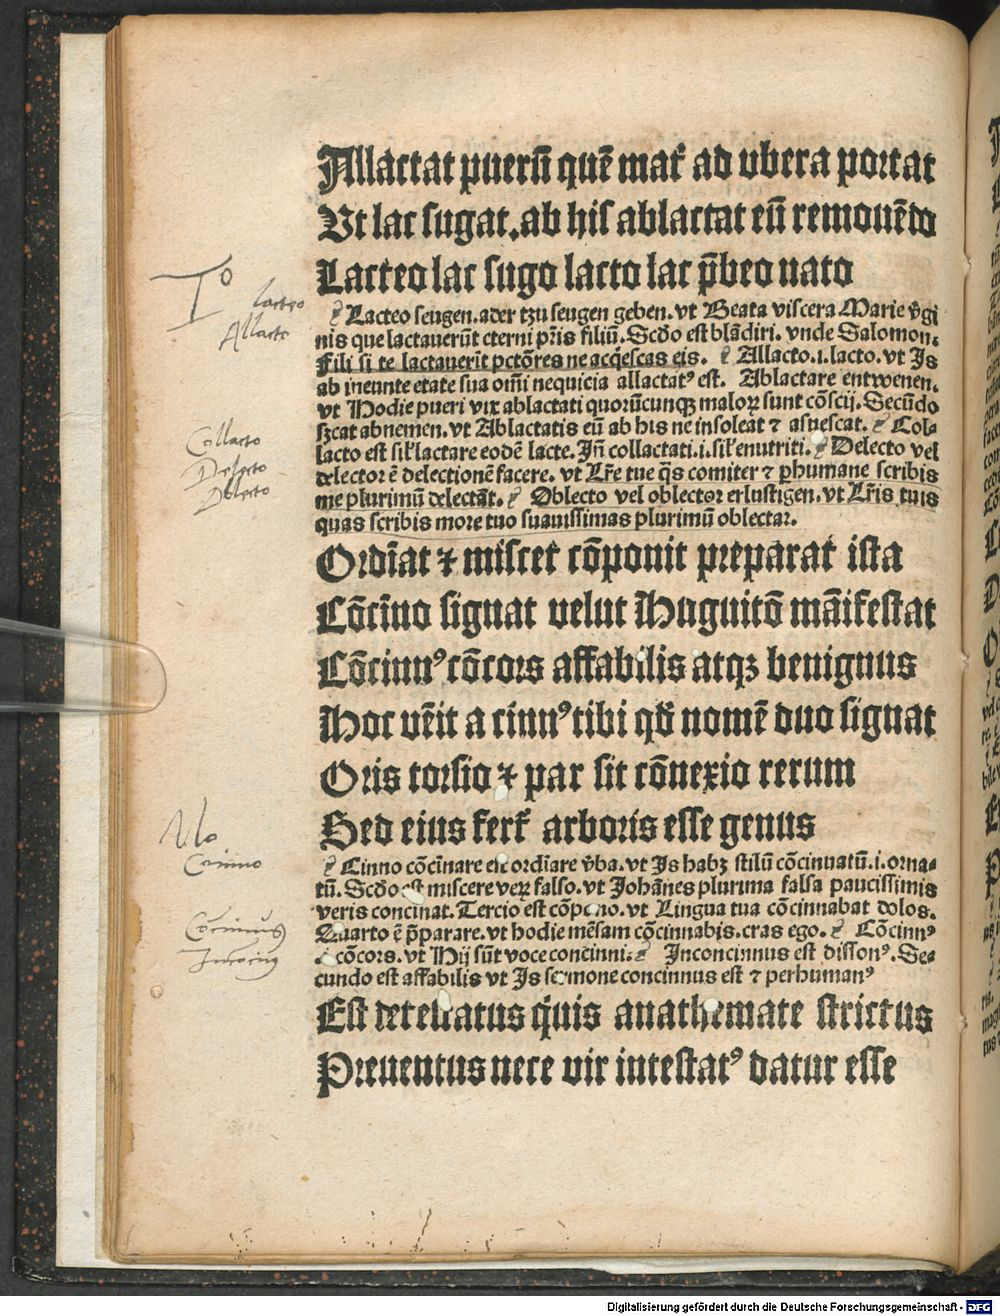 Allactat puerū quē mat̄ ad vbera portat
Vt lac sugat. ab his ablactat eū remouēdo
Lacteo lac sugo lacto lac p̄beo nato
Lacteo seugen. ader tzu seugen geben. vt Beata viscera Marie v̄gi
nis que lactauerūt eterni pr̄is filiū. Scd̄o est blādiri. vnde Salomon.
Fili si te lactauerīt pctōres ne acq̄escas eis. Allacto .i. lacto. vt Is
ab ineunte etate sua om̄i nequicia allactatꝰ est. Ablactare entwenen.
vt Hodie pueri vix ablactati quorūcunqꝫ maloꝝ sunt cōscij. Secūdo
sꝫcat abnemen. vt Ablactatis eū ab his ne insoleat ⁊ assuescat. Col⸗
lacto est sil̄ lactare eodē lacte. Jn̄ collactati .i. sil̄ enutriti. Delecto vel
delector ē delectionē facere. vt Lr̄e tue q̄s comiter ⁊ p̱humane scribis
me plurimū delectāt. Oblecto vel oblector erlustigen. vt Lr̄is tuis
quas scribis more tuo suauissimas plurimū oblectar.
Ordīat ⁊ miscet̄ cōponit preparat̄ ista
Cōcīno signat velut Huguitō māifestat
Cōcinnꝰ cōcors affabilis atqꝫ benignus
Hoc vēit a cinnꝰ tibi qd̄ nomē duo signat
Oris torsio ⁊ par sit cōnexio rerum
Sed eius fert̄ arboris esse genus
Cinno cōcinare ē ordīare v̄ba. vt Is habꝫ stilū cōcinnatū .i. orna⸗
tū. Scd̄o est miscere veꝝ falso. vt Johānes plurima falsa paucissimis
veris concinat. Tercio est cōpono. vt Lingua tua cōcinnabat dolos.
Quarto ē p̄parare. vt hodie mēsam cōcinnabis. cras ego. Cōcinnꝰ
.i. cōcors. vt Hij sūt voce concinni. Inconcinnus est dissonꝰ. Se⸗
cundo est affabilis vt Is sermone concinnus est ⁊ perhumanꝰ
Est detestatus quis anathemate strictus
Preuentus nece vir intestatꝰ datur esse
To
lacteo
Allacto
Collacto
Delecto
Oblecto
No
Concinno
Concinnus
Digitalisierung gefördert durch die Deutsche Forschungsgemeinschaft - DFG